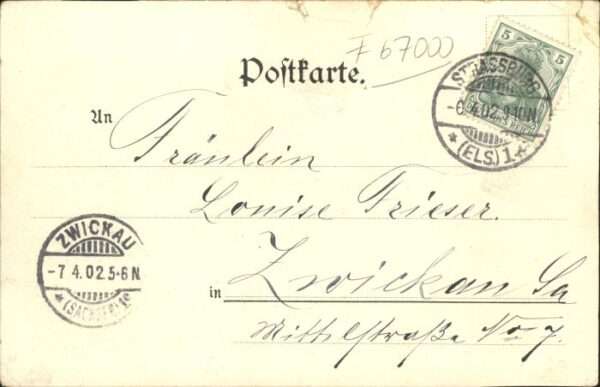 F 67000
5 5
Postkarte.
STRASSBURG
-6.4.02.9-10N.
* (ELS.) 1
An
Fräulein
Louise Frieser.
ZWICKAU
-7 4.02.5-6N
* (SACHSEN)
in Zwickau Sa
Mittelstraße No 7.